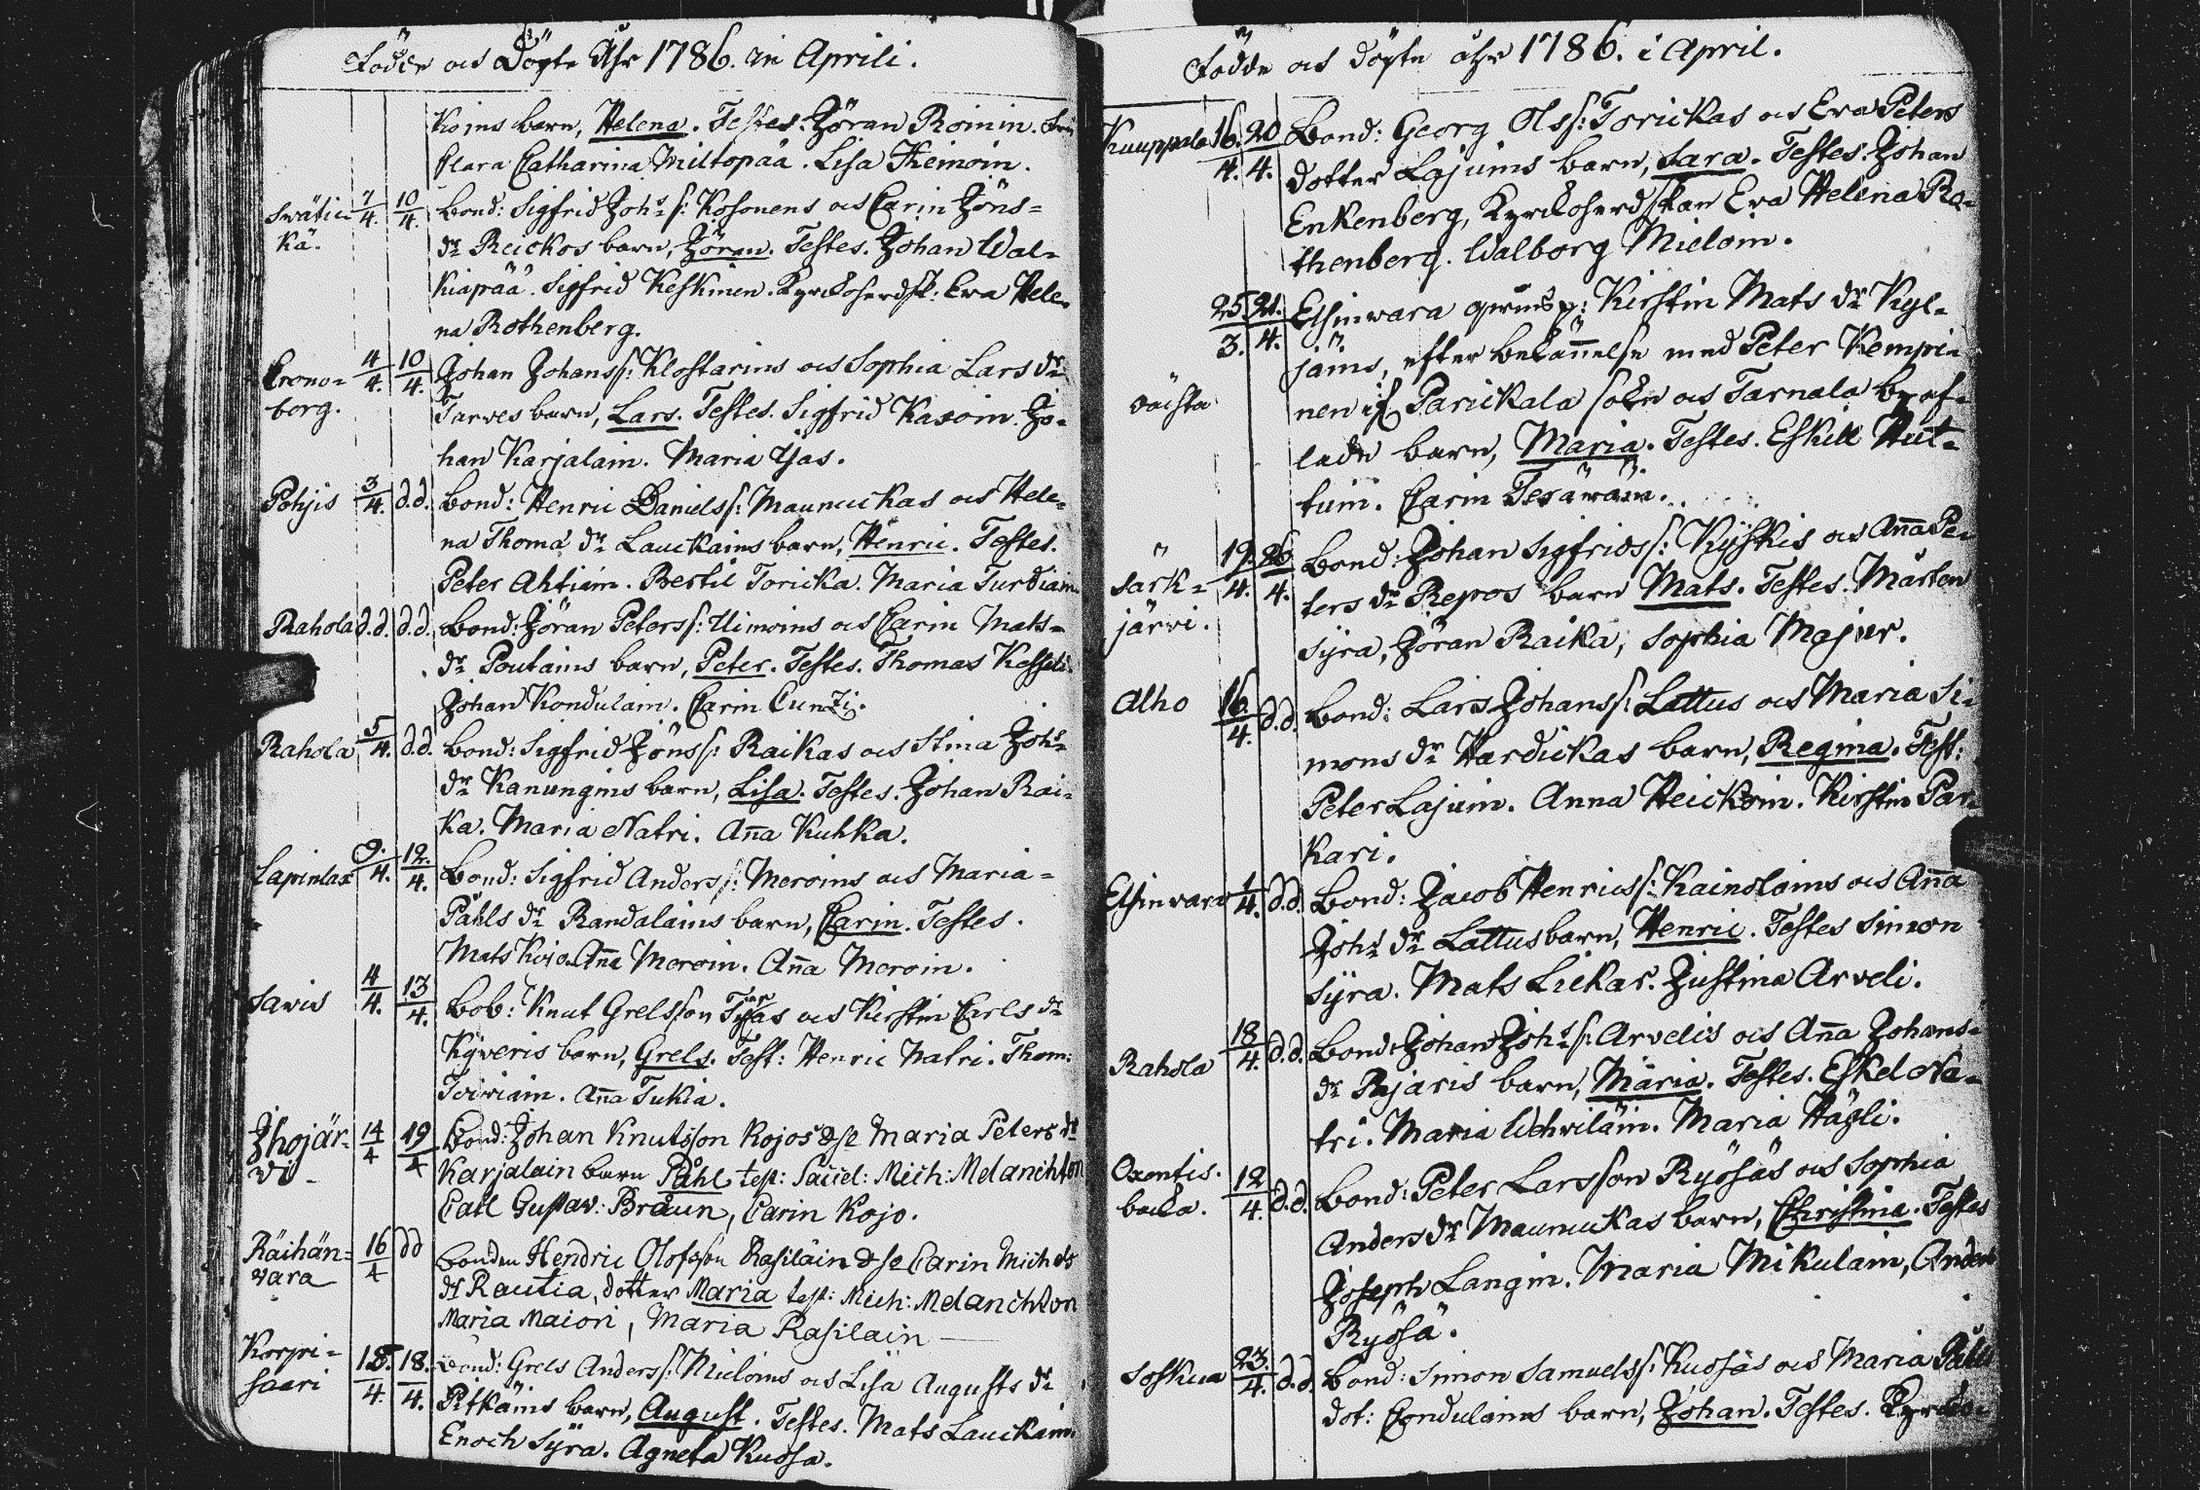 Födde och Döpte Åhr 1786. in Aprili.
Koins barn, Helena. Testes: Jöran Roinin.
Clara Catharina Miltopää. Lisa Heinoin.
Swäti= 7/4. 10/4. Bond: Sigfrid Johs s: Kosonens och Carin Jöns=
kä. dr Reickos barn, Jöran. Testes. Johan Wal=
kiapää. Sigfrid Keskinen. Kyrckoherdsk: Eva Hele=
na Rothenberg.
Crono= 4/4. 10/4. Johan Johanss: Klostarins och Sophia Lars dr
borg. Tarves barn, Lars. Testes. Sigfrid Kaxoin. Jo=
han Karjalain. Maria Yjas.
Pohjis 3/4. d.d. Bond: Henric Daniels s: Maunuckas och Hele=
na Thomæ dr Lauckains barn, Henric. Testes.
Peter Ahtiain. Bertil Toricka. Maria Turdiain.
Rahola d.d. d.d. Bond: Jöran Peters s: Uimoins och Carin Mats=
dr Poutains barn, Peter. Testes. Thomas Kesseli.
Johan Kondulain. Carin Cunzi.
Rahola 5/4. d.d. Bond: Sigfrid Jöns s: Raikas och Stina Johs
dr Kanungins barn, Lisa. Testes. Johan Rai=
ka. Maria Natri. Aña Kuhka.
Lapinlax 9./4. 12./4. Bond: Sigfrid Anders s: Moroins och Maria=
Påhls dr Randalains barn, Carin. Testes.
Mats Kojo. Aña Moroin. Aña Moroin.
Savis 4/4. 13/4. Bob: Knut Grelsson Tyjäs och Kirstin Carls dr
Kyveris barn, Grels. Test: Henric Natri. Thom:
Toiviain. Aña Tukia.
Ihojär= 14/4 19/4 Bond: Johan Knutsson Kojos & se Maria Peters dr
vi - Karjalain barn Påhl test: Sacel: Mich: Melanchton
Carl Gustav: Braun, Carin Kojo.
Räihän= 16/4 dd Bonden Hendric Olofsson Rasilain & se Carin Michels
vara dr Rautia, dotter Maria test: Mich: Melanchton
Maria Maiori, Maria Rasilain
Korpi= 15./4. 18./4. Bond: Grels Anders s: Mieloins och Lisa Augusts dr
saari Pitkäins barn, August. Testes. Mats Lauckain.
Enoch Syra. Agneta Kuosa.
Födde och döpte åhr 1786. i April.
Kuuppala 16./4. 20/4. Bond: Georg Ols s: Torickas och Eva Peters
dotter Lajuins barn, Sara. Testes. Johan
Enkenberg, Kyrckoherdskan Eva Helena Ro=
thenberg. Walborg Mieloin.
25./3. 21./4. Elsinvara qwinsp: Kirstin Mats dr Kyl=
jäins, efter bekännelse med Peter Kempi=
oächta nen if Parickala sokn och Tarnala by af=
lade barn, Maria. Testes. Eskill Hut=
tuin. Carin Teräwäin.
Särk= 19./4. 26/4. Bond: Johan Sigfrids s: Kyskis och Aña Pe=
järvi. ters dr Repos barn Mats. Testes. Mårten
Syra, Jöran Raika, Sophia Majur.
Alho 16/4. d.d. Bond: Lars Johans s: Lattus och Maria Si=
mons dr Hardickas barn, Regina. Test:
Peter Lajuin. Anna Heickoin. Kirstin Par=
kari.
Elsinvara 1/4. d.d. Bond: Jacob Henrics s: Kainoloins och Aña
Johs dr Lattus barn, Henric. Testes Simon
Syra. Mats Liekar. Justina Arveli.
Rahola 18/4. d.d. Bond: Johan Johs s: Arvelis och Aña Johans=
dr Rajaris barn, Maria. Testes. Eskel Na=
tri. Maria Wehviläin. Maria Hägli.
Oxentis= 12/4. d.d. Bond: Peter Larsson Ryösäs och Sophia
backa. Anders dr Maunuckas barn, Christina. Testes
Joseph Langin. Maria Mikulain, Anders
Ryösä.
Soskua 23./4. d.d. Bond: Simon Samuels s: Kuosas och Maria Påhls
dot: Condulains barn, Johan. Testes. Kyrcko=